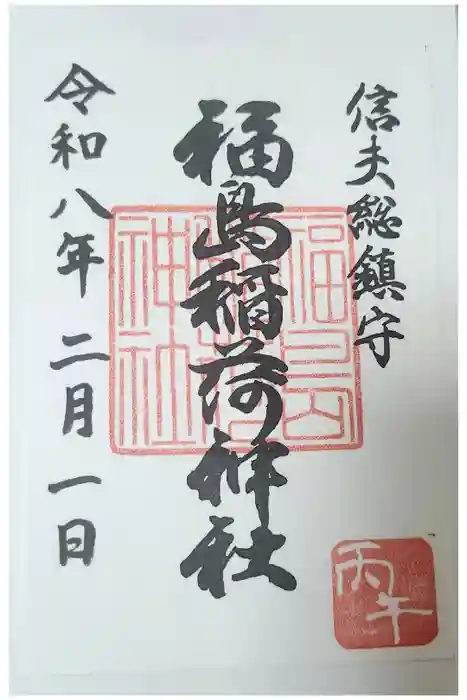 信夫総鎮守
福島稲荷神社
令和八年二月一日
福島
稲荷
神社
丙午